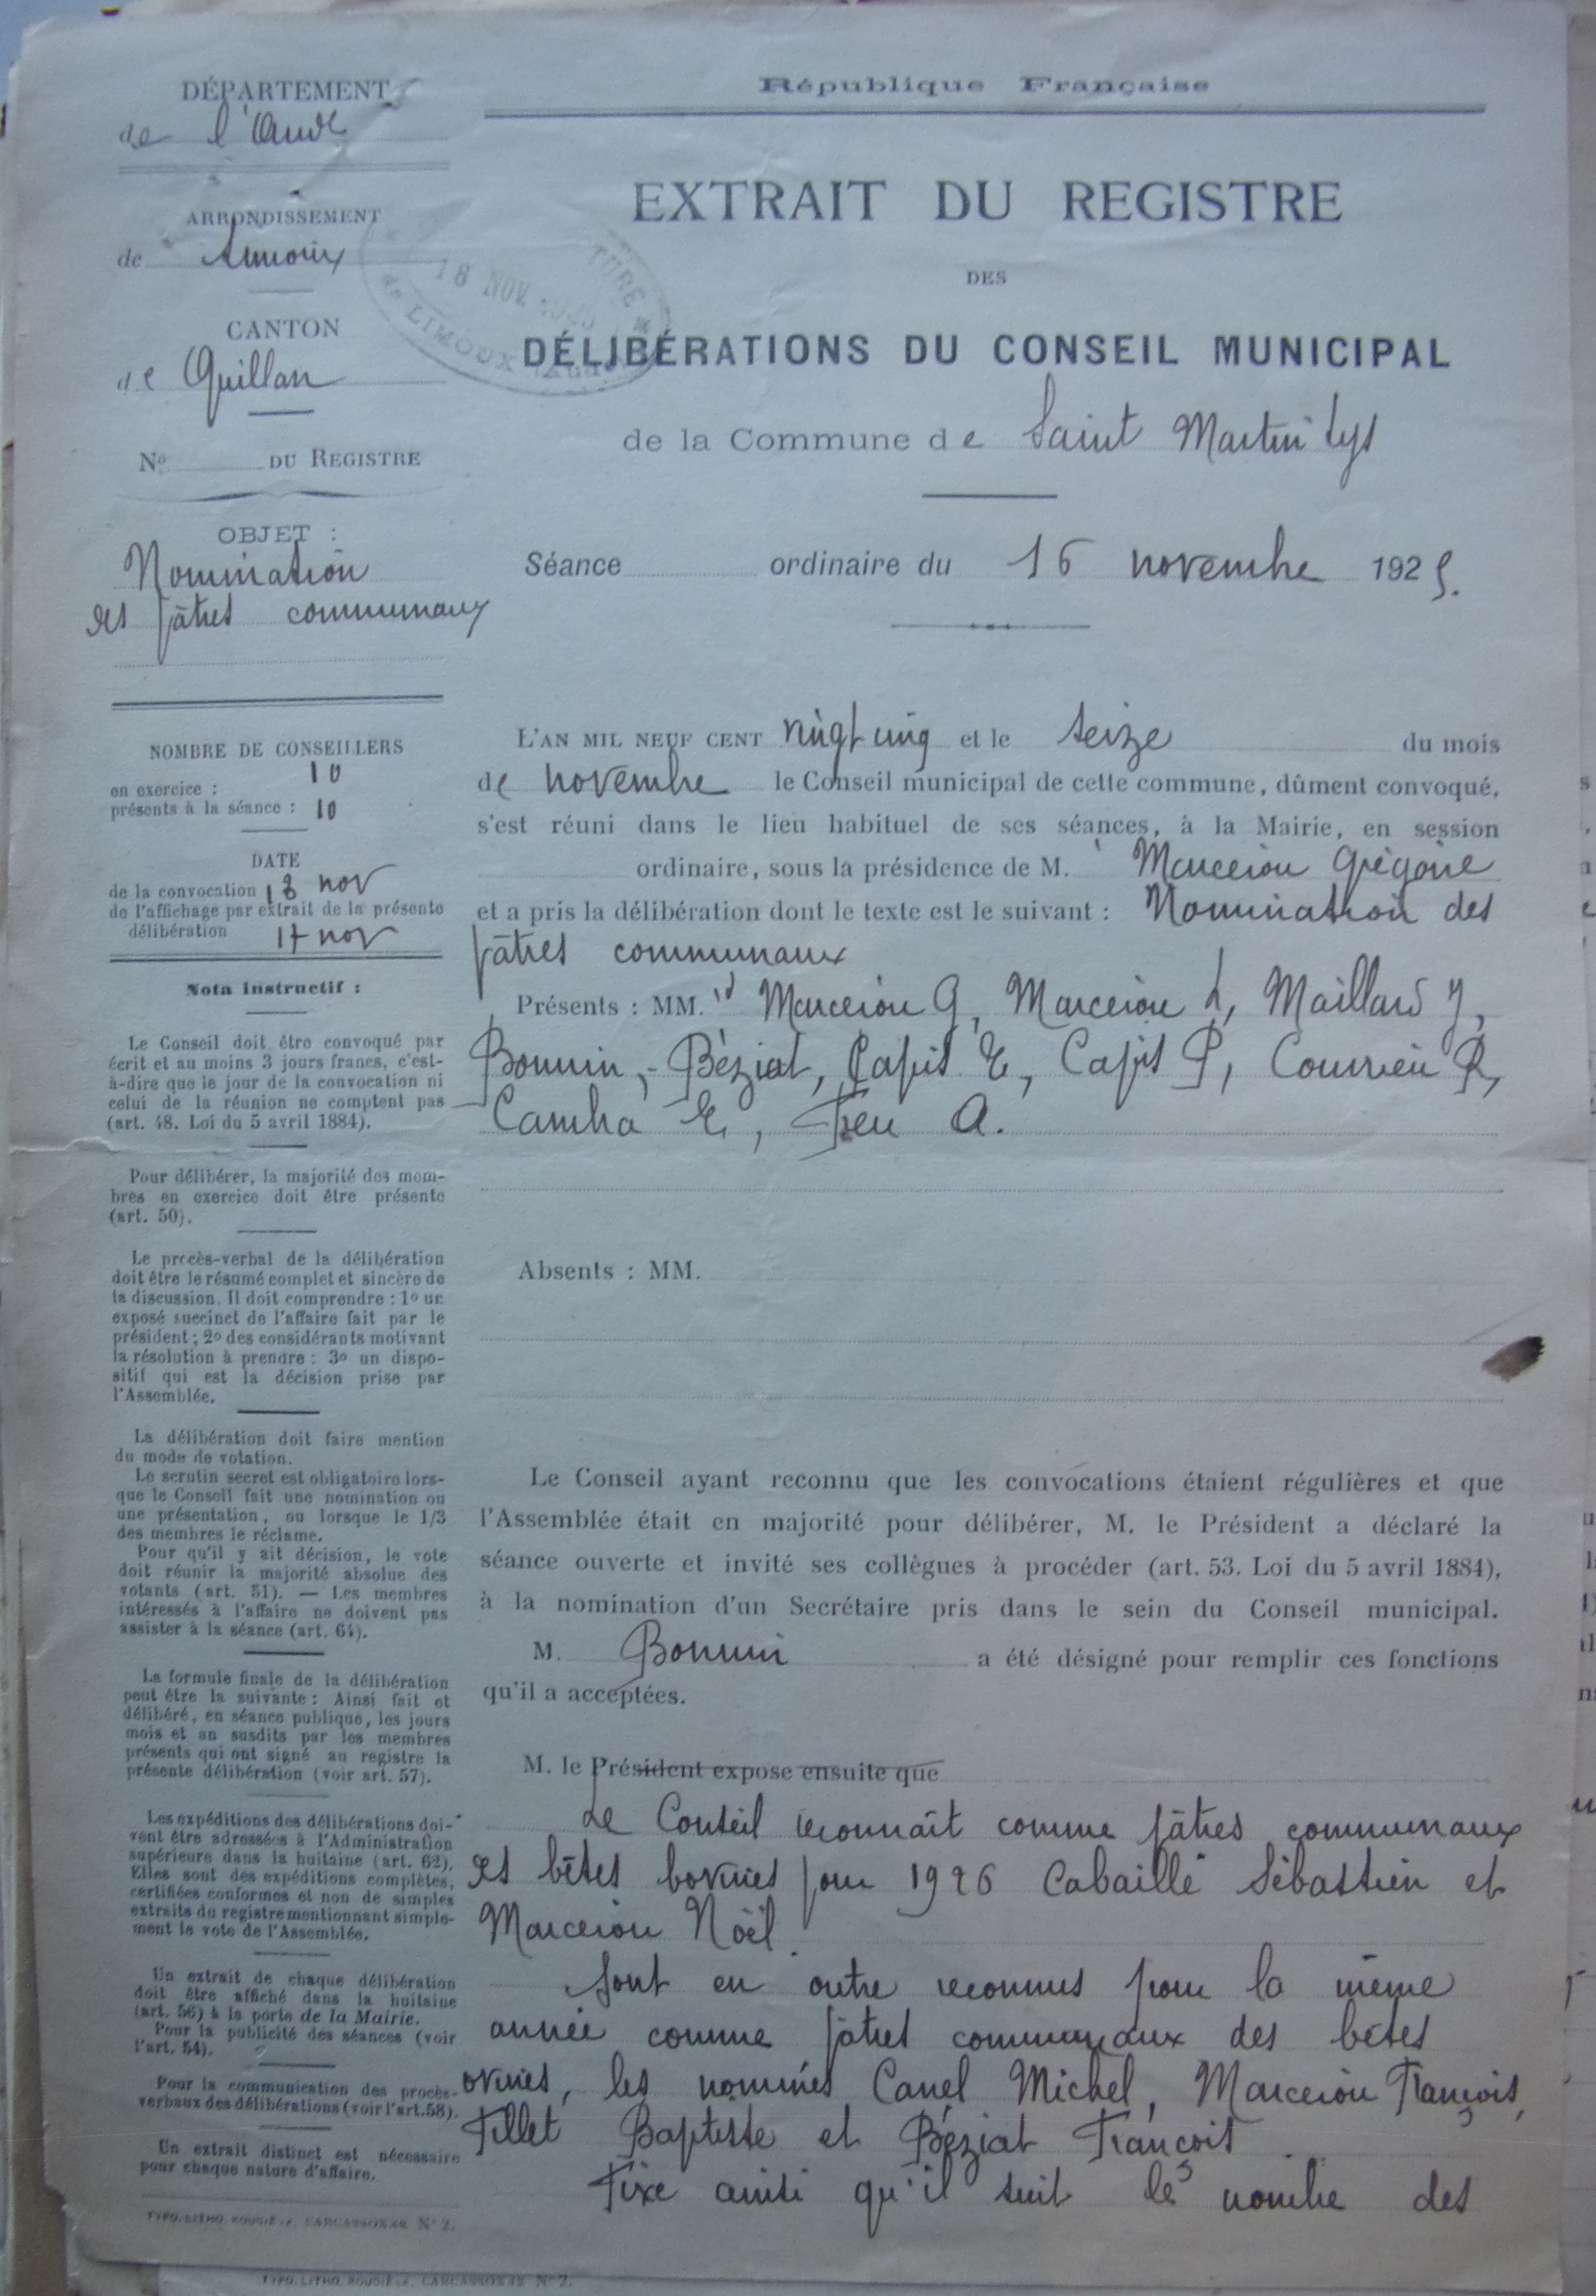 République Française
DÉPARTEMENT
de l'Aude
ARRONDISSEMENT
de Limoux
CANTON
de Quillan
No DU REGISTRE
OBJET :
Nomination
des pâtres communaux
18 NOV
TURE
de LIMOUX
EXTRAIT DU REGISTRE
DES
DÉLIBÉRATIONS DU CONSEIL MUNICIPAL
de la Commune de Saint Martin Lys
Séance ordinaire du 16 novembre 1925.
NOMBRE DE CONSEILLERS
en exercice : 10
présents à la séance : 10
DATE
de la convocation 13 nov
de l'affichage par extrait de la présente
délibération 17 nov
Nota instructif :
Le Conseil doit être convoqué par
écrit et au moins 3 jours francs, c'est-
à-dire que le jour de la convocation ni
celui de la réunion ne comptent pas
(art. 48. Loi du 5 avril 1884).
Pour délibérer, la majorité des mem-
bres en exercice doit être présente
(art. 50).
Le procès-verbal de la délibération
doit être le résumé complet et sincère de
la discussion. Il doit comprendre : 1o un
exposé succinct de l'affaire fait par le
président ; 2o des considérants motivant
la résolution à prendre : 3o un dispo-
sitif qui est la décision prise par
l'Assemblée.
La délibération doit faire mention
du mode de votation.
Le scrutin secret est obligatoire lors-
que le Conseil fait une nomination ou
une présentation, ou lorsque le 1/3
des membres le réclame.
Pour qu'il y ait décision, le vote
doit réunir la majorité absolue des
votants (art. 51). — Les membres
intéressés à l'affaire ne doivent pas
assister à la séance (art. 64).
La formule finale de la délibération
peut être la suivante : Ainsi fait et
délibéré, en séance publique, les jours
mois et an susdits par les membres
présents qui ont signé au registre la
présente délibération (voir art. 57).
Les expéditions des délibérations doi-
vent être adressées à l'Administration
supérieure dans la huitaine (art. 62).
Elles sont des expéditions complètes,
certifiées conformes et non de simples
extraits du registre mentionnant simple-
ment le vote de l'Assemblée.
Un extrait de chaque délibération
doit être affiché dans la huitaine
(art. 56) à la porte de la Mairie.
Pour la publicité des séances (voir
l'art. 54).
Pour la communication des procès-
verbaux des délibérations (voir l'art. 58).
Un extrait distinct est nécessaire
pour chaque nature d'affaire.
L'AN MIL NEUF CENT vingt cinq et le seize du mois
de novembre le Conseil municipal de cette commune, dûment convoqué,
s'est réuni dans le lieu habituel de ses séances, à la Mairie, en session
ordinaire, sous la présidence de M. Marcerou Grégoire
et a pris la délibération dont le texte est le suivant : Nomination des
pâtres communaux
Présents : MM. Marcerou G, Marcerou L, Maillard J,
Bonnin, Béziat, Capis E, Capis P, Courrieu R,
Camba E, Feu A.
Absents : MM.
Le Conseil ayant reconnu que les convocations étaient régulières et que
l'Assemblée était en majorité pour délibérer, M. le Président a déclaré la
séance ouverte et invité ses collègues à procéder (art. 53. Loi du 5 avril 1884),
à la nomination d'un Secrétaire pris dans le sein du Conseil municipal.
M. Bonnin a été désigné pour remplir ces fonctions
qu'il a acceptées.
M. le Président expose ensuite que
Le Conseil reconnaît comme pâtres communaux
des bêtes bovines pour 1926 Cabaillé Sébastien et
Marcerou Noël.
Sont en outre reconnus pour la même
année comme pâtres communaux des bêtes
ovines, les nommés Canel Michel, Marcerou François,
Tillet Baptiste et Béziat François.
Fixe ainsi qu'il suit le nombre des
TYPO. LITHO. ROUDIÈRE, CARCASSONNE No 2.
TYPO. LITHO. ROUDIÈRE, CARCASSONNE No 2.